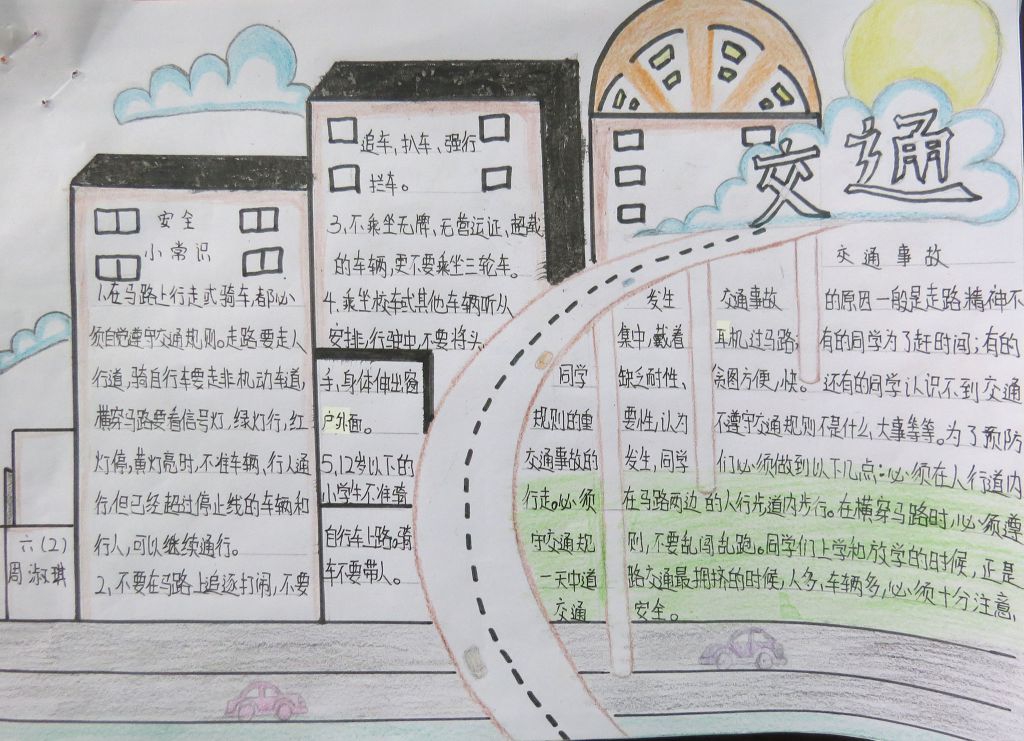 交通
安全
小常识
1.在马路上行走或骑车,都必
须自觉遵守交通规则。走路要走人
行道,骑自行车要走非机动车道,
横穿马路要看信号灯,绿灯行,红
灯停,黄灯亮时,不准车辆、行人通
行,但已经超过停止线的车辆和
行人,可以继续通行。
2、不要在马路上追逐打闹,不要
追车,扒车、强行
拦车。
3、不乘坐无牌,无营运证、超载
的车辆,更不要乘坐三轮车。
4.乘坐校车或其他车辆听从
安排,行驶中,不要将头、
手,身体伸出窗
户外面。
5,12岁以下的
小学生不准骑
自行车上路。骑
车不要带人。
交通事故
发生 交通事故 的原因一般是走路精神不
集中,戴着 耳机,过马路; 有的同学为了赶时间;有的
同学 缺乏耐性、 贪图方便,快。 还有的同学认识不到交通
规则的重 要性,认为 不遵守交通规则不是什么大事等等。为了预防
交通事故的 发生,同学 们必须做到以下几点:必须在人行道内
行走。必须 在马路两边的人行步道内步行。在横穿马路时,必须遵
守交通规 则,不要乱闯乱跑。同学们上学和放学的时候,正是
一天中道 路交通最拥挤的时候,人多、车辆多,必须十分注意
交通 安全。
六(2)
周淑琪